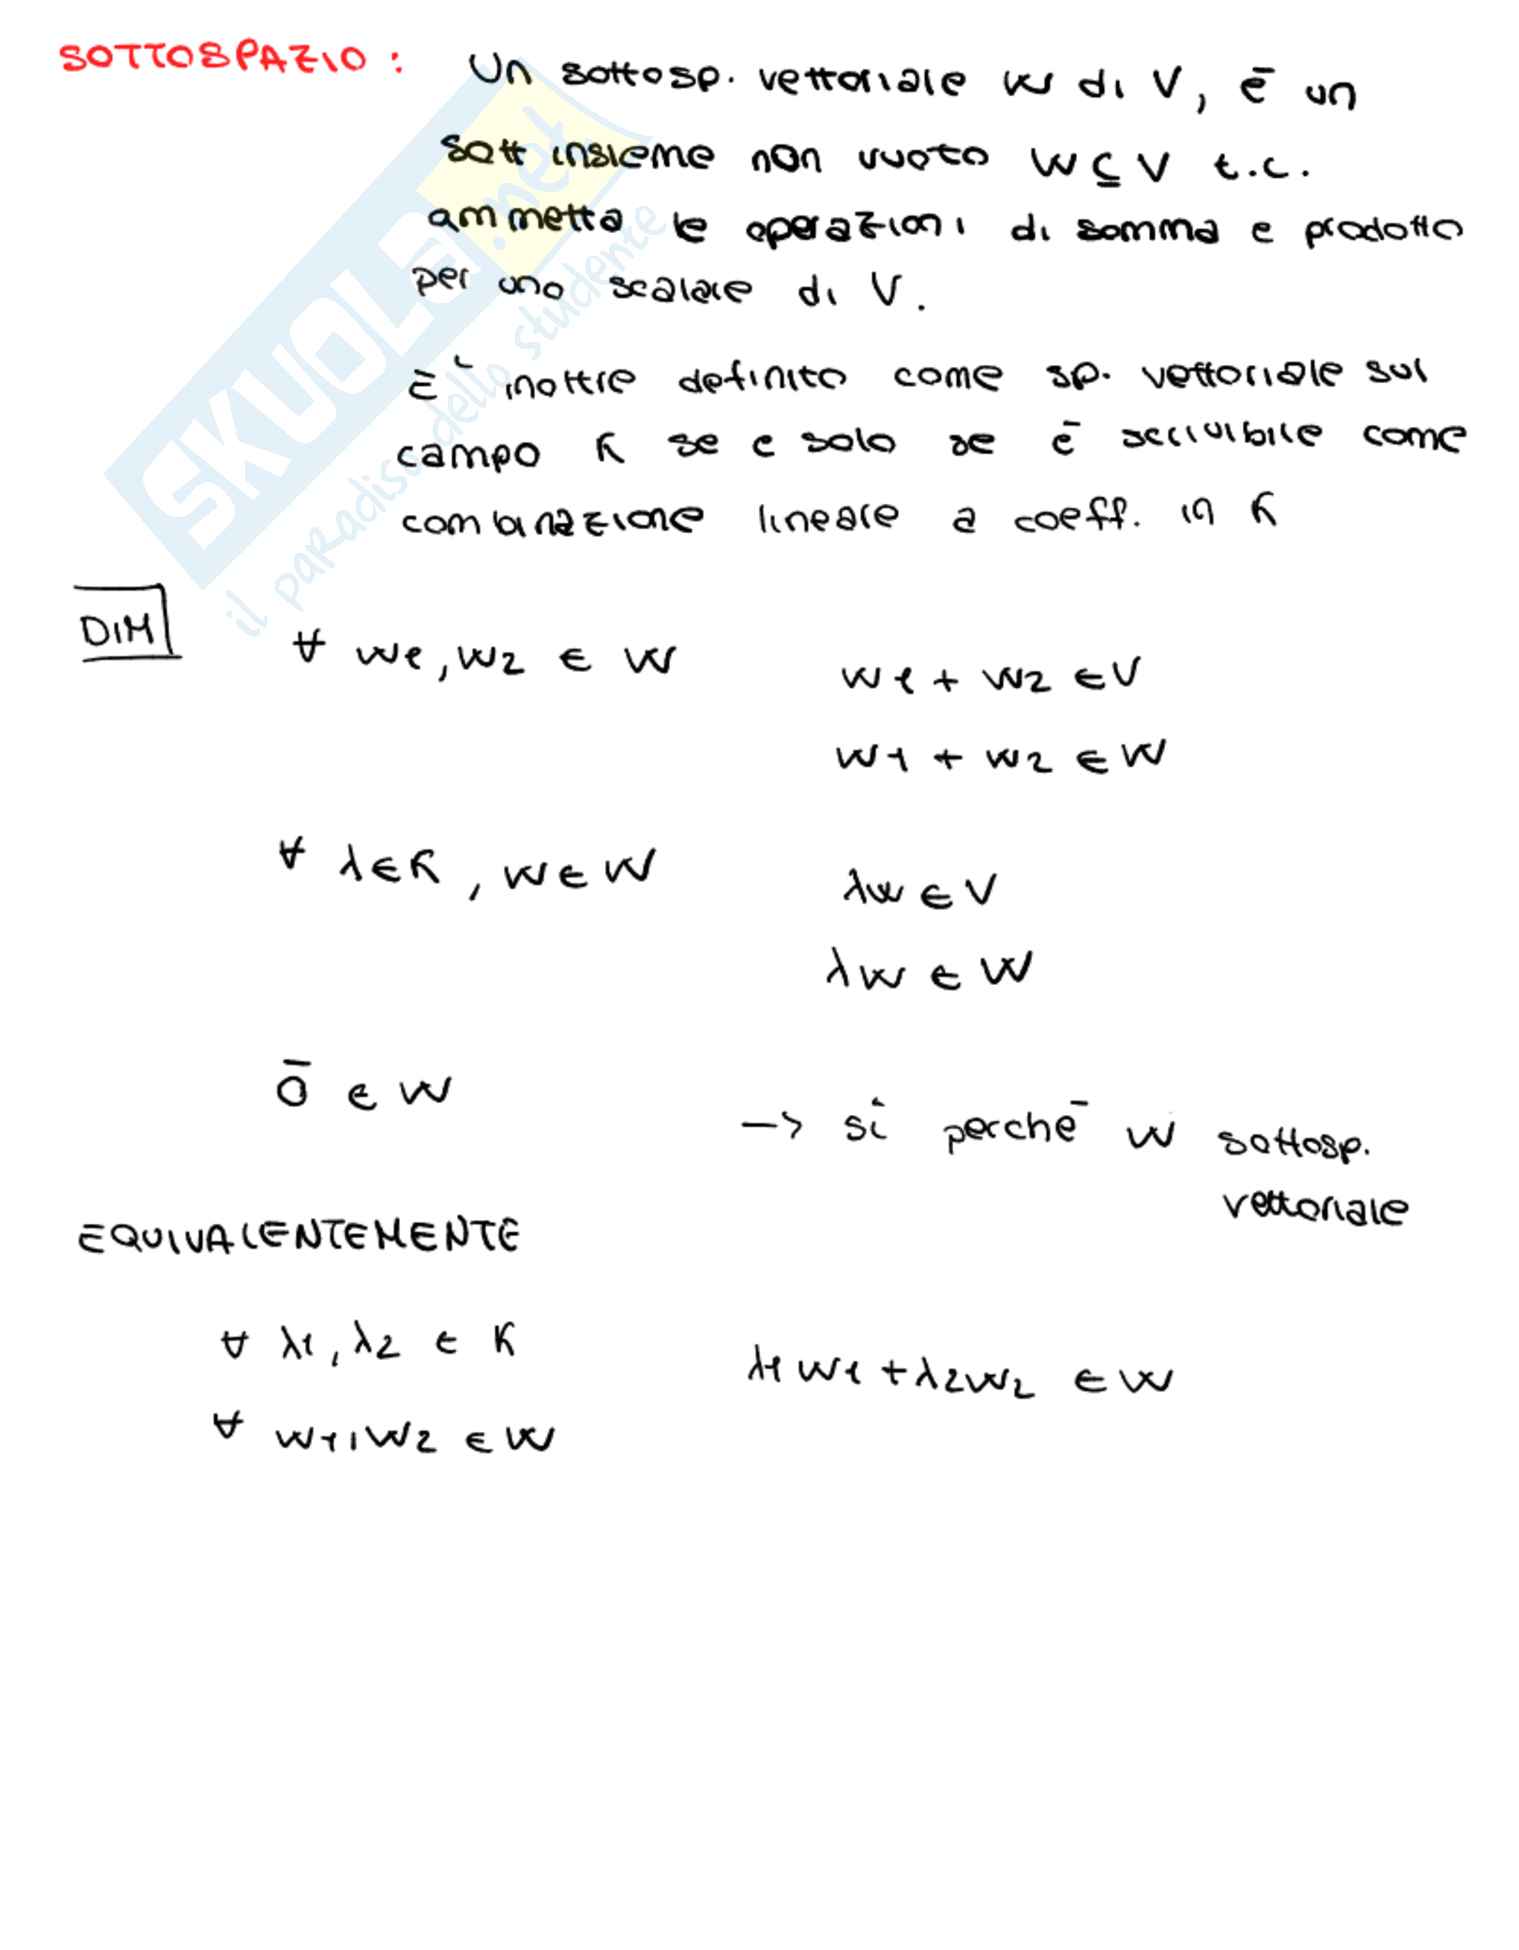 SOTTOSPAZIO: Un sottosp. vettoriale W di V, è un
sottinsieme non vuoto W ⊆ V t.c.
ammetta le operazioni di somma e prodotto
per uno scalare di V.
È inoltre definito come sp. vettoriale sul
campo K se e solo se è scrivibile come
combinazione lineare a coeff. in K
DIM
∀ w1, w2 ∈ W w1 + w2 ∈ V
w1 + w2 ∈ W
∀ λ ∈ K, w ∈ W λw ∈ V
λw ∈ W
0̄ ∈ W -> sì perchè W sottosp.
vettoriale
EQUIVALENTEMENTE
∀ λ1, λ2 ∈ K λ1w1 + λ2w2 ∈ W
∀ w1, w2 ∈ W
SKUOLA.net
il paradiso dello studente